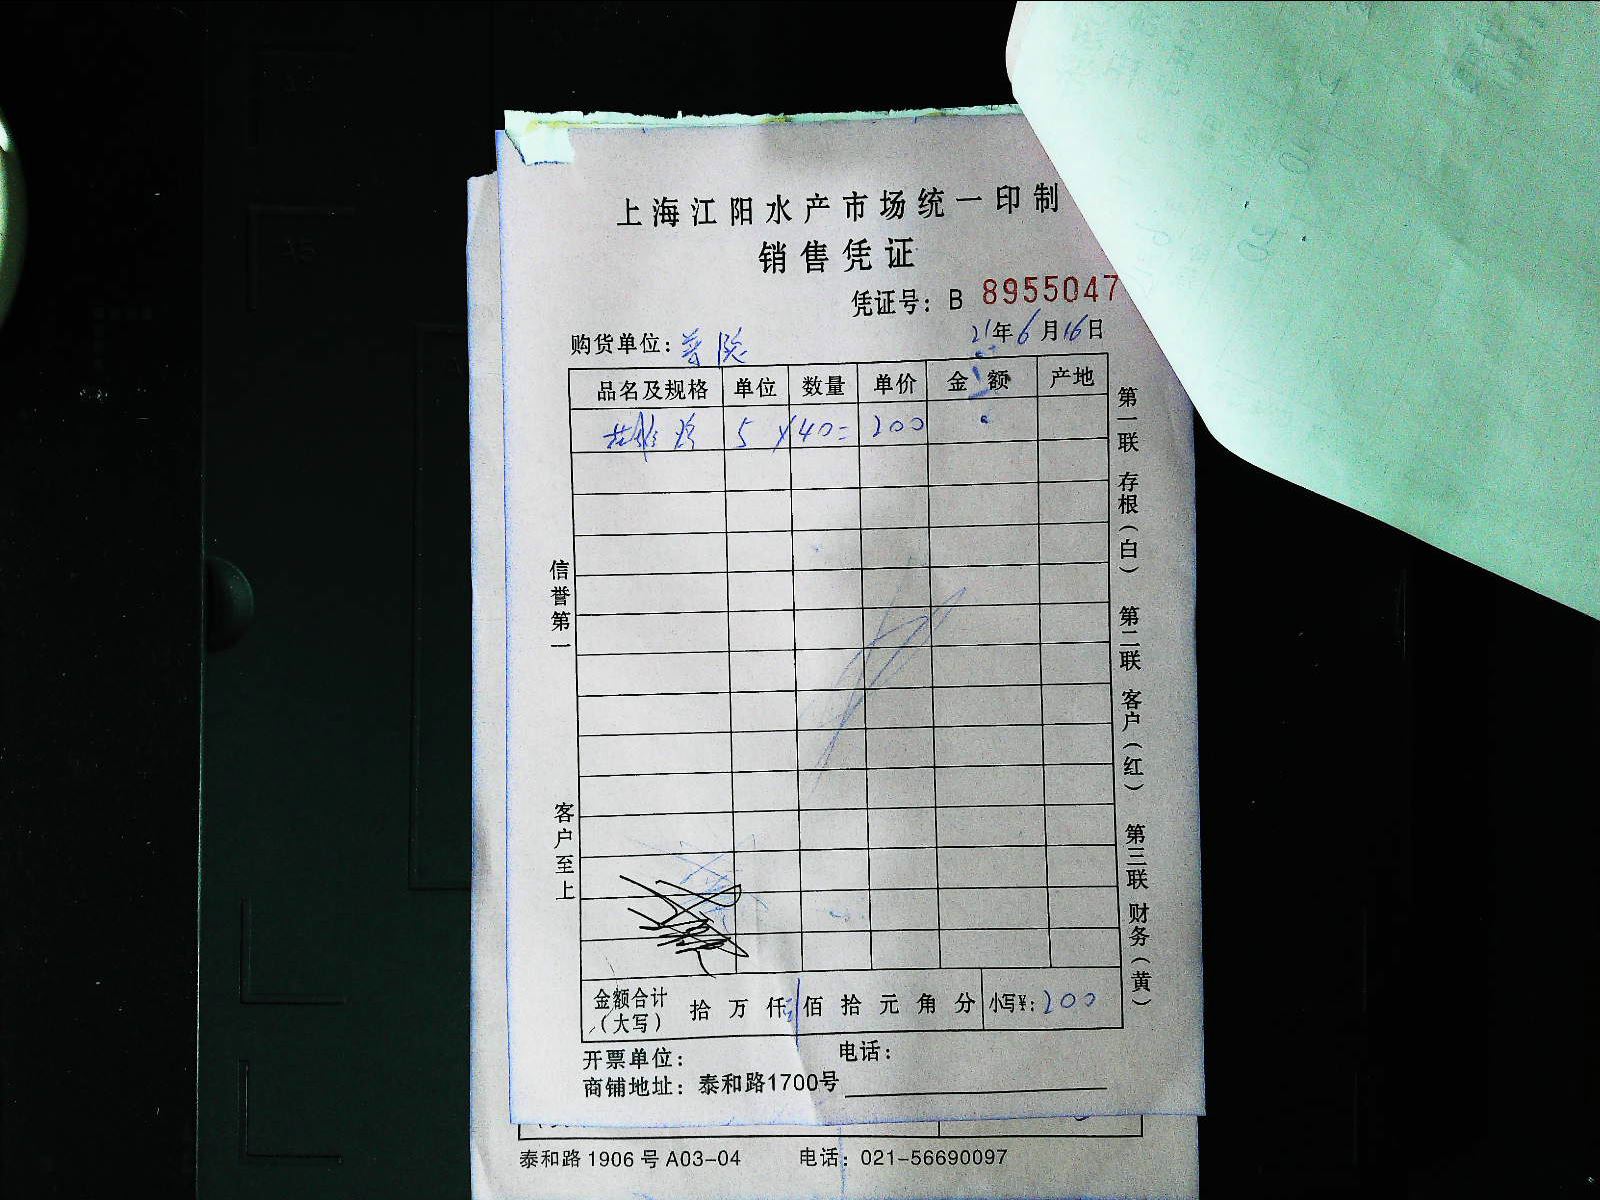 上海江阳水产市场统一印制
销售凭证
凭证号：B 8955047
购货单位：
21年6月16日
品名及规格 单位 数量 单价 金额 产地
5 ×40= 200
信誉第一
客户至上
第一联 存根（白） 第二联 客户（红） 第三联 财务（黄）
金额合计（大写） 拾 万 仟 佰 拾 元 角 分 小写¥：200
开票单位： 电话：
商铺地址：泰和路1700号
泰和路1906号A03-04 电话：021-56690097